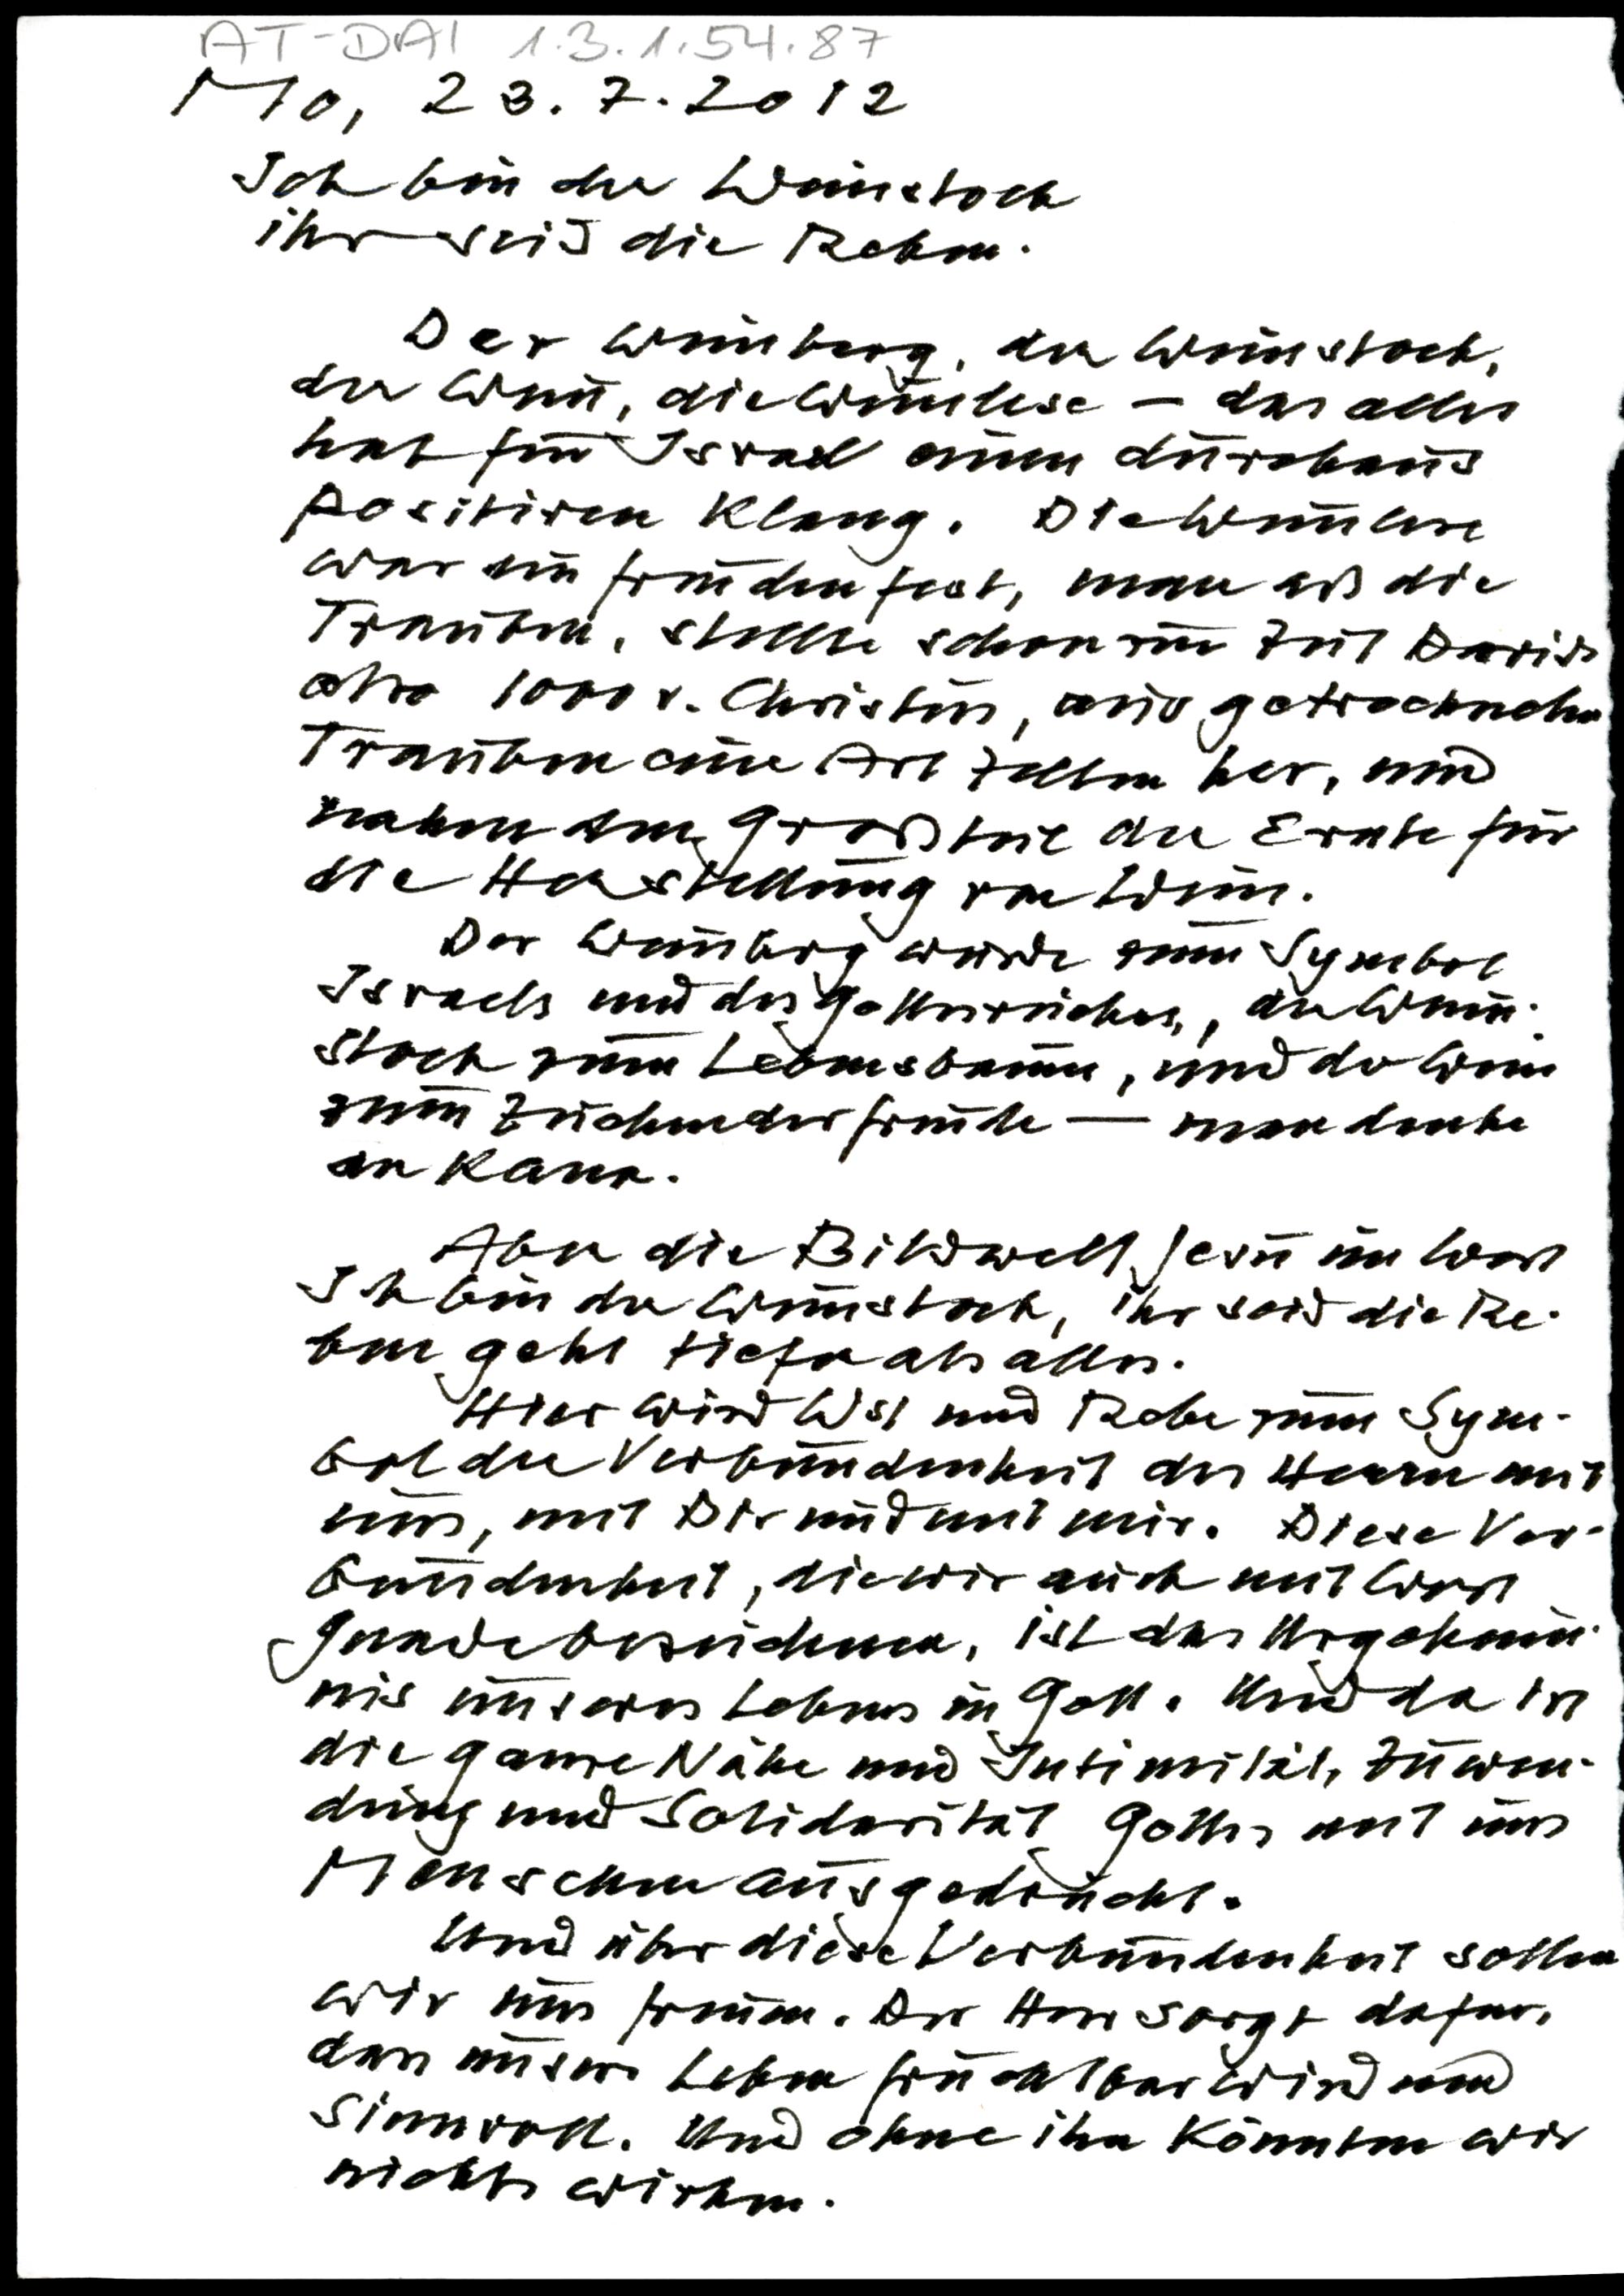 AT-DAI 1.3.1.54.87
Mo, 23.7.2012
Ich bin der Weinstock
ihr seid die Reben.
Der Weinberg, der Weinstock,
der Wein, die Weinlese – das alles
hat für Israel einen durchaus
positiven Klang. Die Weinlese
war ein Freudenfest, man aß die
Trauben, stellte schon zur Zeit Davids
also 1000 v. Christus, aus getrockneten
Trauben eine Art Zelten her, und
nahm den Großteil der Ernte für
die Herstellung von Wein.
Der Weinberg wurde zum Symbol
Israels und des Gottesreiches, der Wein-
stock zum Lebensbaum, und der Wein
zum Zeichen der Freude — man denke
an Kana.
Aber die Bildwelt Jesu im Wort
Ich bin der Weinstock, ihr seid die Re-
ben geht tiefer als alles.
Hier wird Wst und Rebe zum Sym-
bol der Verbundenheit des Herrn mit
uns, mit Dir und mit mir. Diese Ver-
bundenheit, die wir auch mit Wort
Gnade bezeichnen, ist das Urgeheim-
nis unseres Lebens in Gott. Und da ist
die ganze Nähe und Intimität, Zuwen-
dung und Solidarität Gottes mit uns
Menschen ausgedrückt.
Und über diese Verbundenheit sollen
wir uns freuen. Der Herr sorgt dafür,
dass unser Leben fruchtbar wird und
sinnvoll. Und ohne ihn könnten wir
nichts wirken.